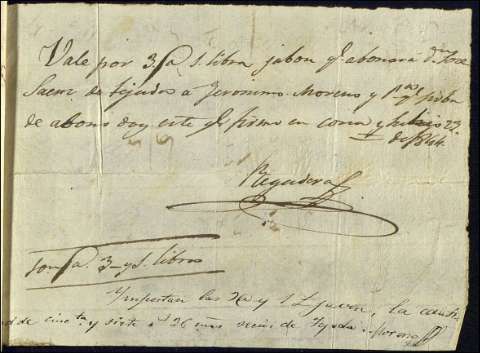 Vale por 3 @ 1. libra jabon q.e abonará D.n Jose
Saenz de tejados a Geronimo Moreno y p.a q.e
de abono doy este q.e firmo en Coria y Julio 23
de 1844.
Regadera
Son @. 3 - y 1. libras
Ymportan las 3 @ y 1 L javon, la cant.
d de cinc.ta y siete r.s 26 mrs